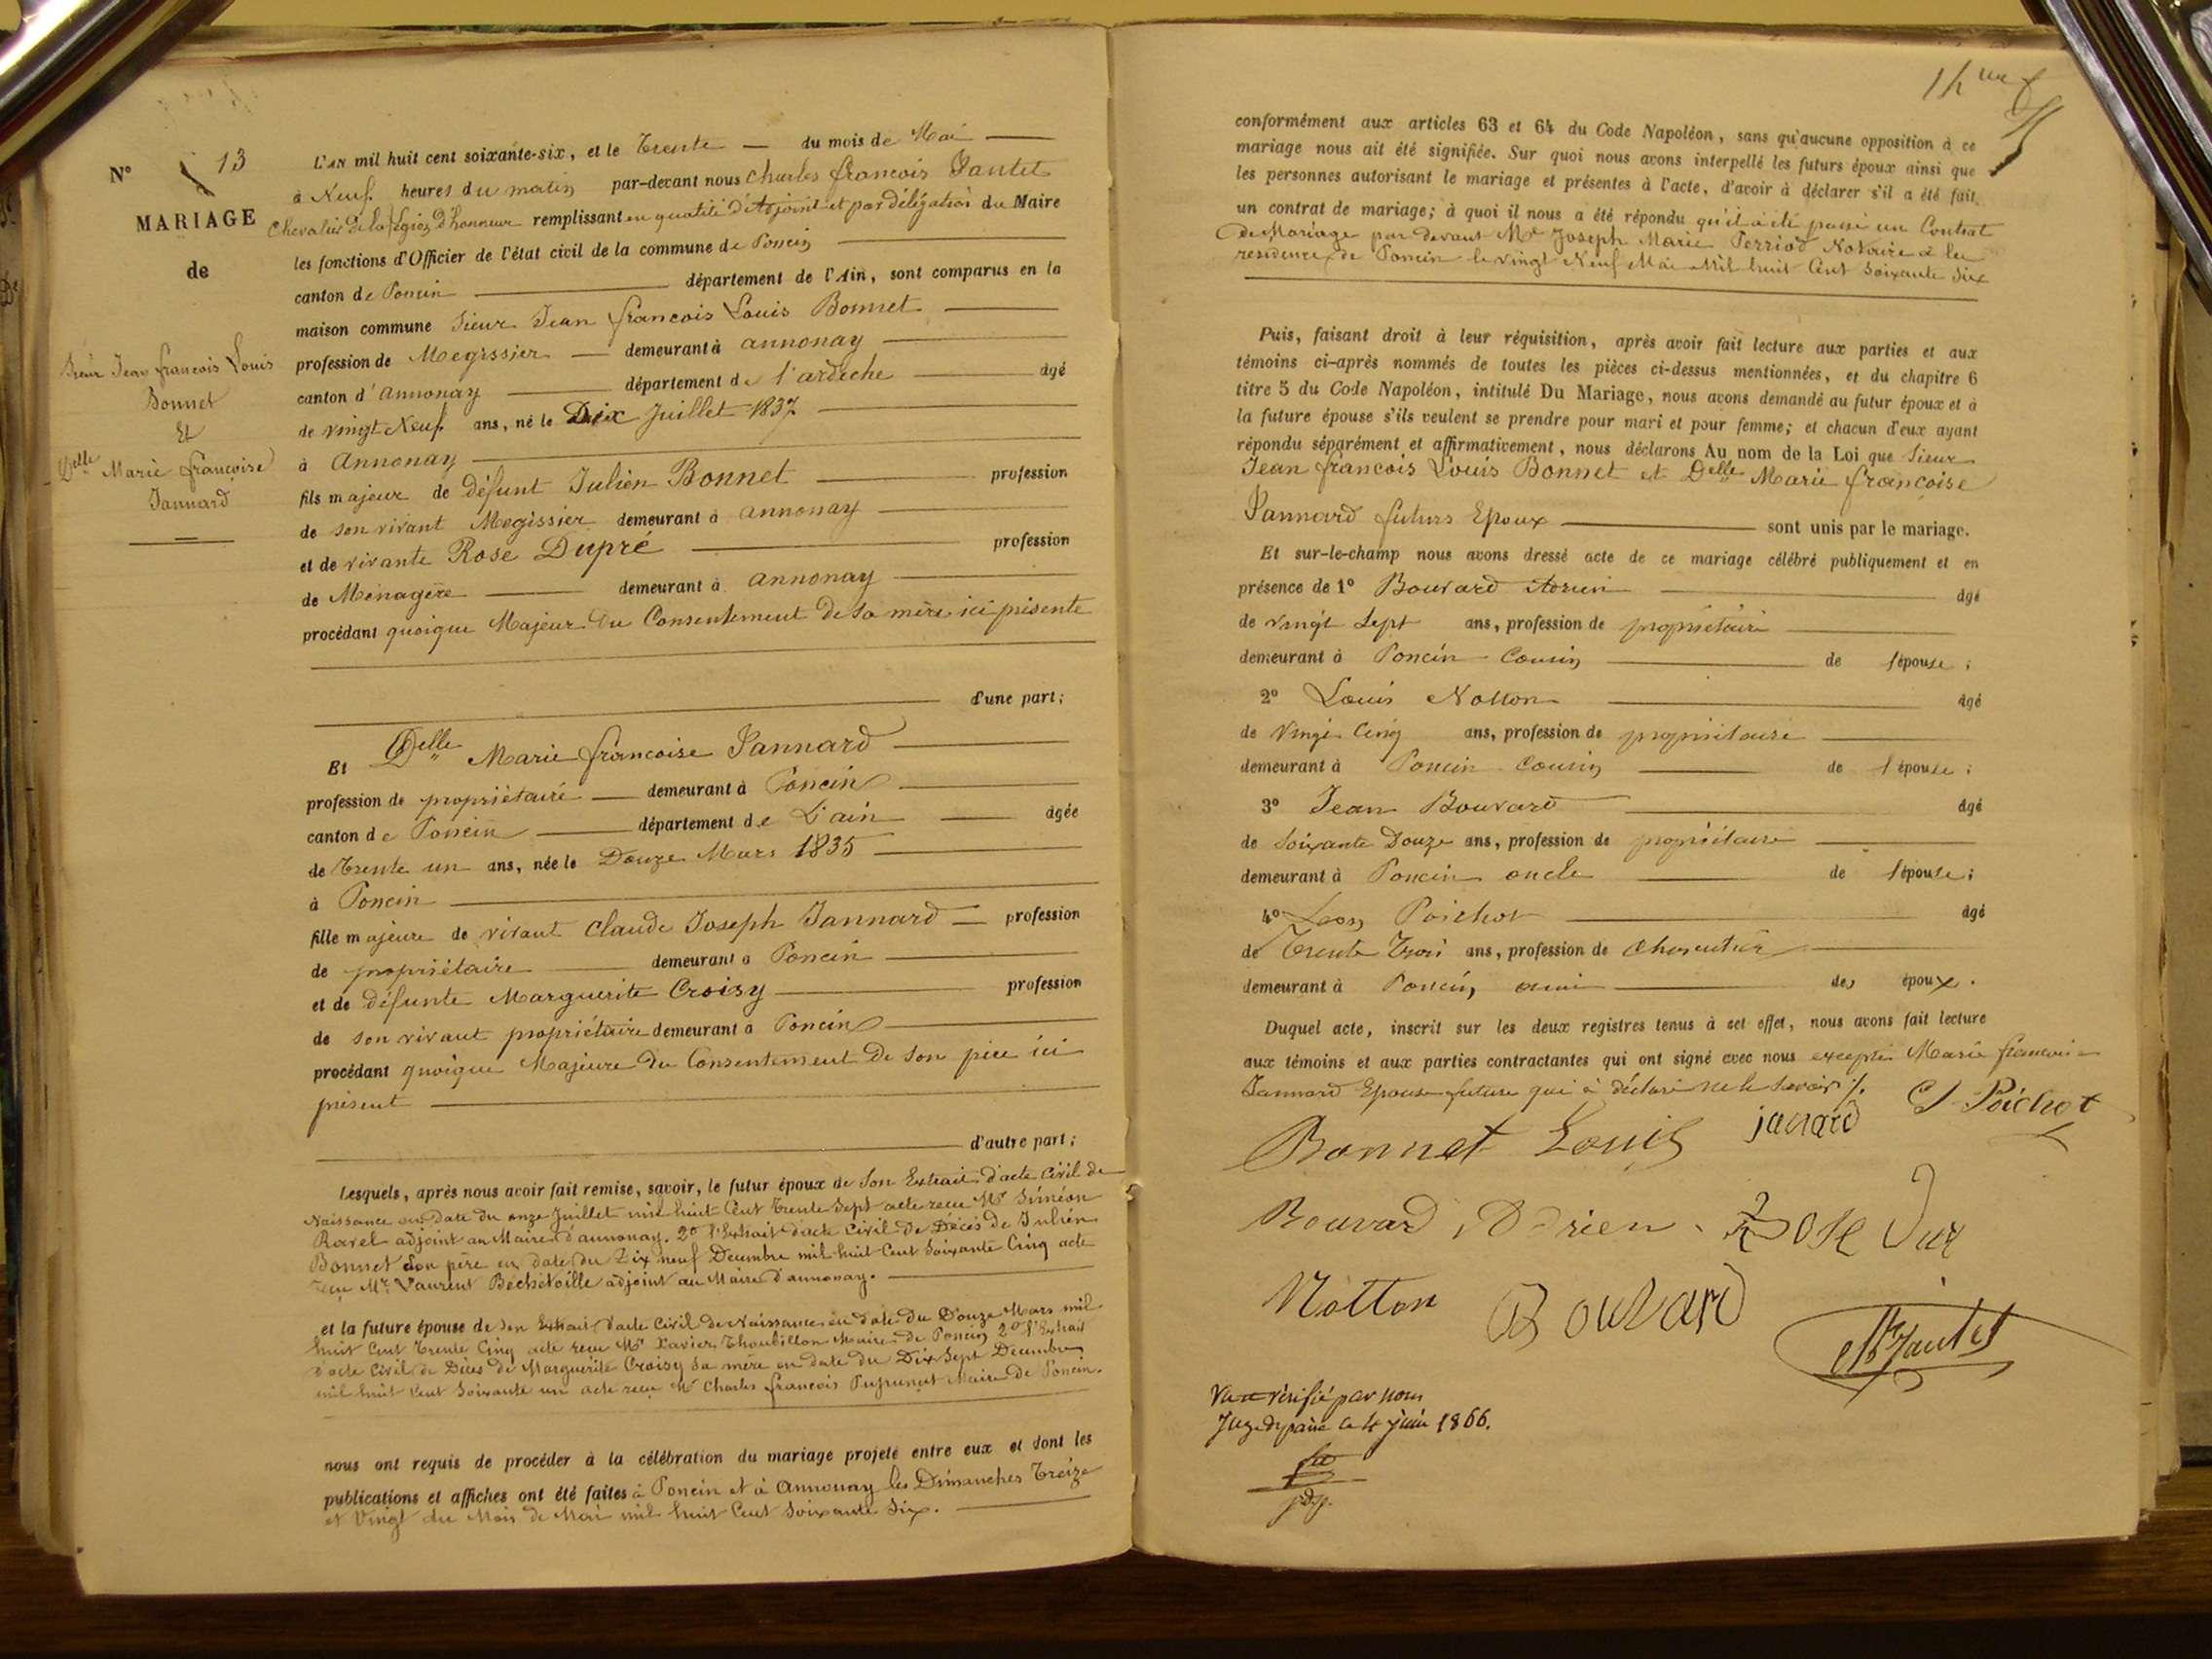 N° 13
MARIAGE
de
Sieur Jean francois Louis
Bonnet
Et
Delle Marie françoise
Jannard
L'AN mil huit cent soixante-six, et le Trente du mois de Mai
à Neuf heures du matin par-devant nous Charles francois Jantet
Chevalier de la Légion d'honneur remplissant en qualité d'Adjoint et par délégation du Maire
les fonctions d'Officier de l'état civil de la commune de Poncin
canton de Poncin département de l'Ain, sont comparus en la
maison commune Sieur Jean francois Louis Bonnet
profession de Megissier demeurant à annonay
canton d'annonay département de l'ardèche âgé
de vingt Neuf ans, né le Dix Juillet 1837
à Annonay
fils majeur de défunt Julien Bonnet profession
de son vivant Mégissier demeurant à annonay
et de vivante Rose Dupré profession
de Ménagère demeurant à annonay
procédant quoique Majeur du Consentement de sa mère ici présente
d'une part;
Et Delle Marie francoise Jannard
profession de propriétaire demeurant à Poncin
canton de Poncin département de L'ain âgée
de Trente un ans, née le Douze Mars 1835
à Poncin
fille majeure de vivant Claude Joseph Jannard profession
de propriétaire demeurant à Poncin
et de défunte Marguerite Croisy profession
de son vivant propriétaire demeurant à Poncin
procédant quoique Majeure du Consentement de son père ici
présent
d'autre part;
Lesquels, après nous avoir fait remise, savoir, le futur époux de son Extrait d'acte Civil de
Naissance en date du onze Juillet mil huit Cent Trente Sept acte reçu Mr Siméon
Ravel adjoint au Maire d'annonay. 2° l'Extrait d'acte Civil de Décès de Julien
Bonnet son père en date du Dix neuf Decembre mil huit Cent Soixante Cinq acte
reçu Mr Laurent Bechetoille adjoint au Maire d'annonay.
et la future épouse de son Extrait d'acte Civil de Naissance en date du Douze Mars mil
huit Cent Trente Cinq acte reçu Mr Xavier Thoubillon Maire de Poncin 2° l'Extrait
d'acte Civil de Décès de Marguerite Croisy sa mère en date du Dix Sept Decembre
mil huit Cent Soixante un acte reçu Mr Charles francois Maire de Poncin.
nous ont requis de procéder à la célébration du mariage projeté entre eux et dont les
publications et affiches ont été faites à Poncin et à annonay les Dimanches Treize
et Vingt du Mois de Mai mil huit Cent Soixante Six.
conformément aux articles 63 et 64 du Code Napoléon, sans qu'aucune opposition à ce
mariage nous ait été signifiée. Sur quoi nous avons interpellé les futurs époux ainsi que
les personnes autorisant le mariage et présentes à l'acte, d'avoir à déclarer s'il a été fait
un contrat de mariage; à quoi il nous a été répondu qu'il a été passé un Contrat
de Mariage par devant Me Joseph Marie Perriod Notaire à la
residence de Poncin le vingt Neuf Mai Mil huit Cent Soixante Six
Puis, faisant droit à leur réquisition, après avoir fait lecture aux parties et aux
témoins ci-après nommés de toutes les pièces ci-dessus mentionnées, et du chapitre 6
titre 5 du Code Napoléon, intitulé Du Mariage, nous avons demandé au futur époux et à
la future épouse s'ils veulent se prendre pour mari et pour femme; et chacun d'eux ayant
répondu séparément et affirmativement, nous déclarons Au nom de la Loi que Sieur
Jean francois Louis Bonnet et Delle Marie francoise
Jannard futurs Epoux sont unis par le mariage.
Et sur-le-champ nous avons dressé acte de ce mariage célébré publiquement et en
présence de 1° Bouvard Adrien âgé
de vingt Sept ans, profession de propriétaire
demeurant à Poncin Cousin de l'épouse;
2° Louis Notton âgé
de vingt Cinq ans, profession de propriétaire
demeurant à Poncin Cousin de l'épouse;
3° Jean Bouvard âgé
de Soixante Douze ans, profession de propriétaire
demeurant à Poncin oncle de l'épouse;
4° Leon Poichot âgé
de Trente Trois ans, profession de Charcutier
demeurant à Poncin, ami des époux.
Duquel acte, inscrit sur les deux registres tenus à cet effet, nous avons fait lecture
aux témoins et aux parties contractantes qui ont signé avec nous excepté Marie francoise
Jannard Epouse future qui à déclaré ne le Savoir %.
Bonnet Louis janard Poichot
Bouvard Adrien Rose Du
Notton Bouvard
Jantet
Vu et vérifié par nous
Juge de paix le 4 juin 1866.